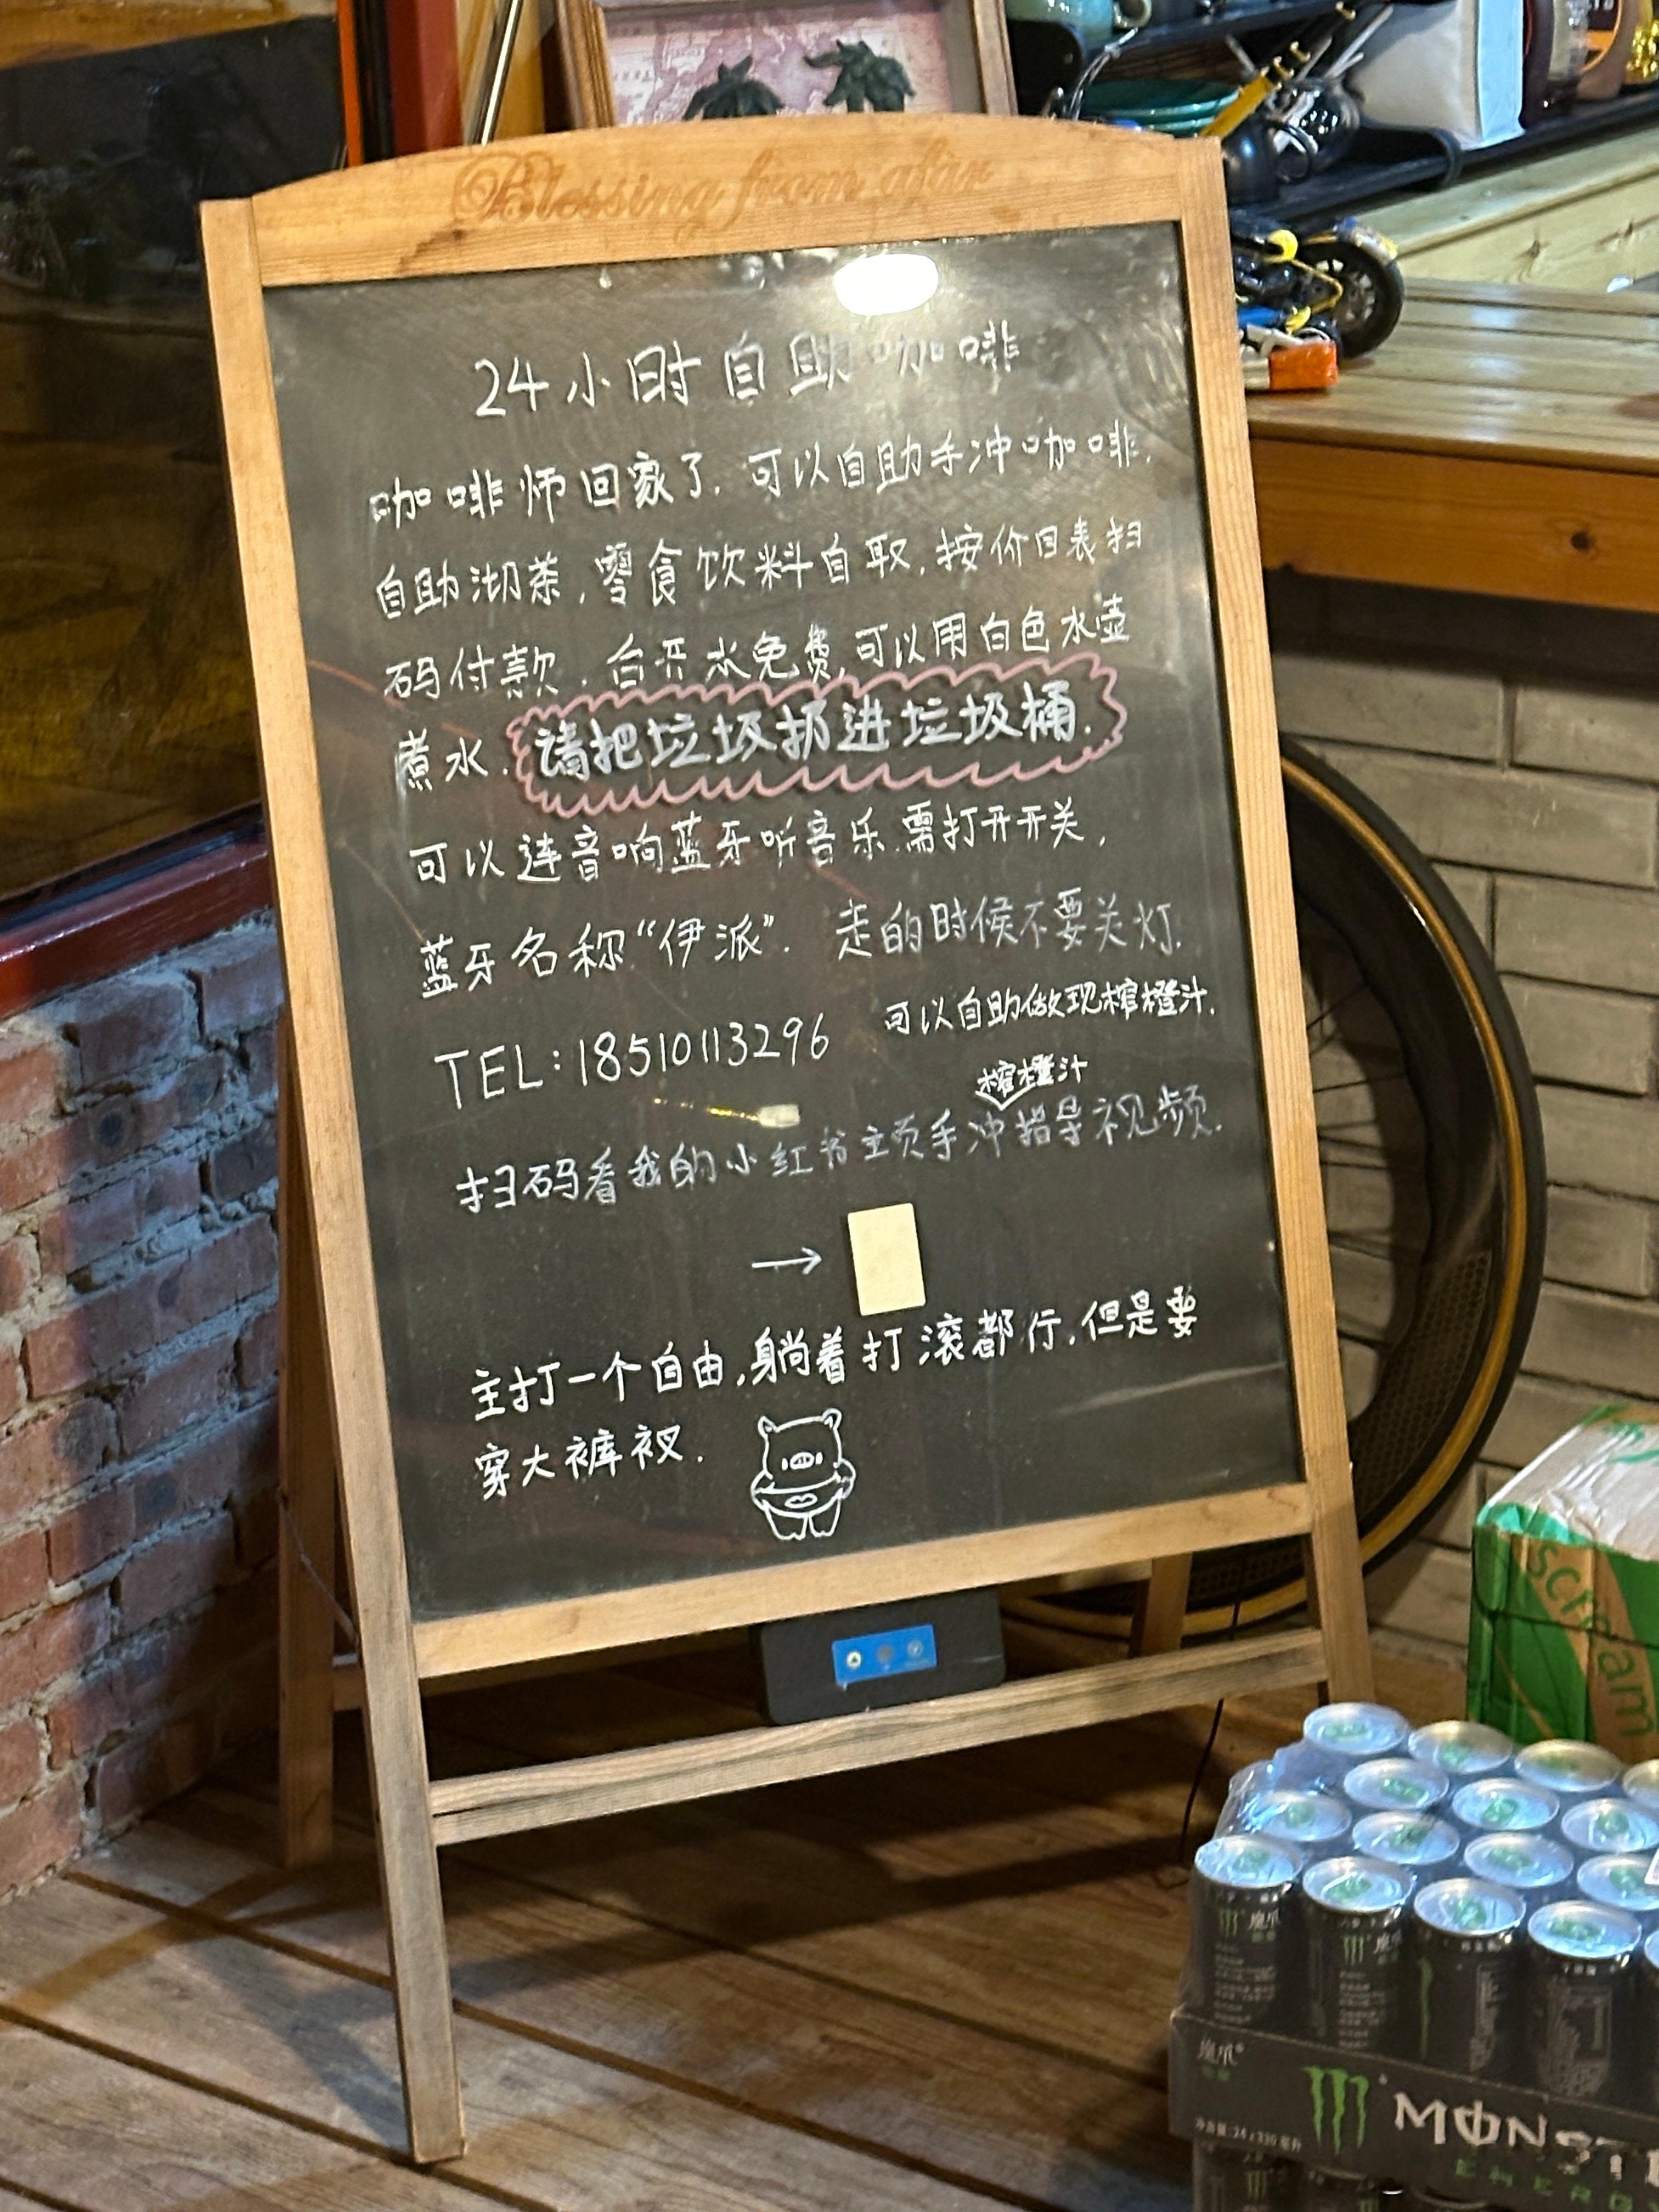 Blessing from afar
24小时自助咖啡
咖啡师回家了.可以自助手冲咖啡.
自助沏茶,零食饮料自取.按价目表扫
码付款.白开水免费,可以用白色水壶
煮水.请把垃圾扔进垃圾桶.
可以连音响蓝牙听音乐.需打开开关,
蓝牙名称“伊派”. 走的时候不要关灯.
TEL:18510113296 可以自助做现榨橙汁.
榨橙汁
扫码看我的小红书主页手冲指导视频.
→
主打一个自由,躺着打滚都行,但是要
穿大裤衩.
scream
魔爪
MONST
ENERG